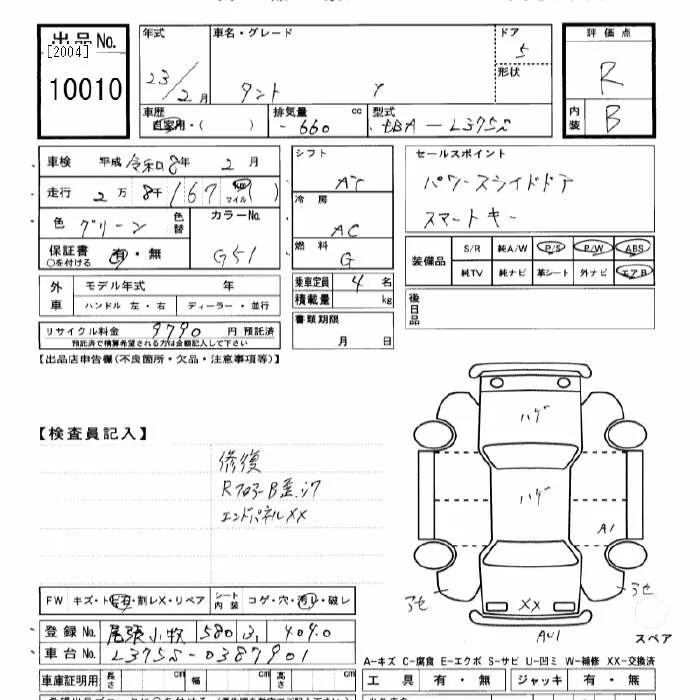 出品No.
[2004]
10010
年式
23/2月
車名・グレード
タント
ドア
5
形状
評価点
R
内装
B
車歴
自家用・( )
排気量 cc
660
型式
EBA-L375S
車検 平成 令和8年 2月
走行 2万 8千 167 マイル( )
色 グリーン 色替
カラーNo.
G51
保証書
○を付ける
有・無
シフト
AT
冷房
AC
燃料
G
セールスポイント
パワースライドドア
スマートキー
装備品
S/R 純A/W P/S P/W ABS
純TV 純ナビ 革シート 外ナビ エアB
外車
モデル年式 年
ハンドル 左・右 ディーラー・並行
乗車定員 4 名
積載量 kg
後日品
リサイクル料金 9790 円 預託済
預託済で積算希望される方は金額記入して下さい
書類期限
月 日
【出品店申告欄(不良箇所・欠品・注意事項等)】
【検査員記入】
修復
Rフロアー
エンドパネルXX
ハゲ
ハゲ
A1
XX
AU1
スペア
FW キズ・ト 有・割レX・リペア
シート内装 コゲ・穴・汚レ・破レ
登録No. 尾張小牧 580 4040
車台No. L375S-0387901
A-キズ C-腐食 E-エクボ S-サビ U-凹ミ W-補修 XX-交換済
車庫証明用 長さ cm 幅 cm 高さ cm
工具 有・無 ジャッキ 有・無